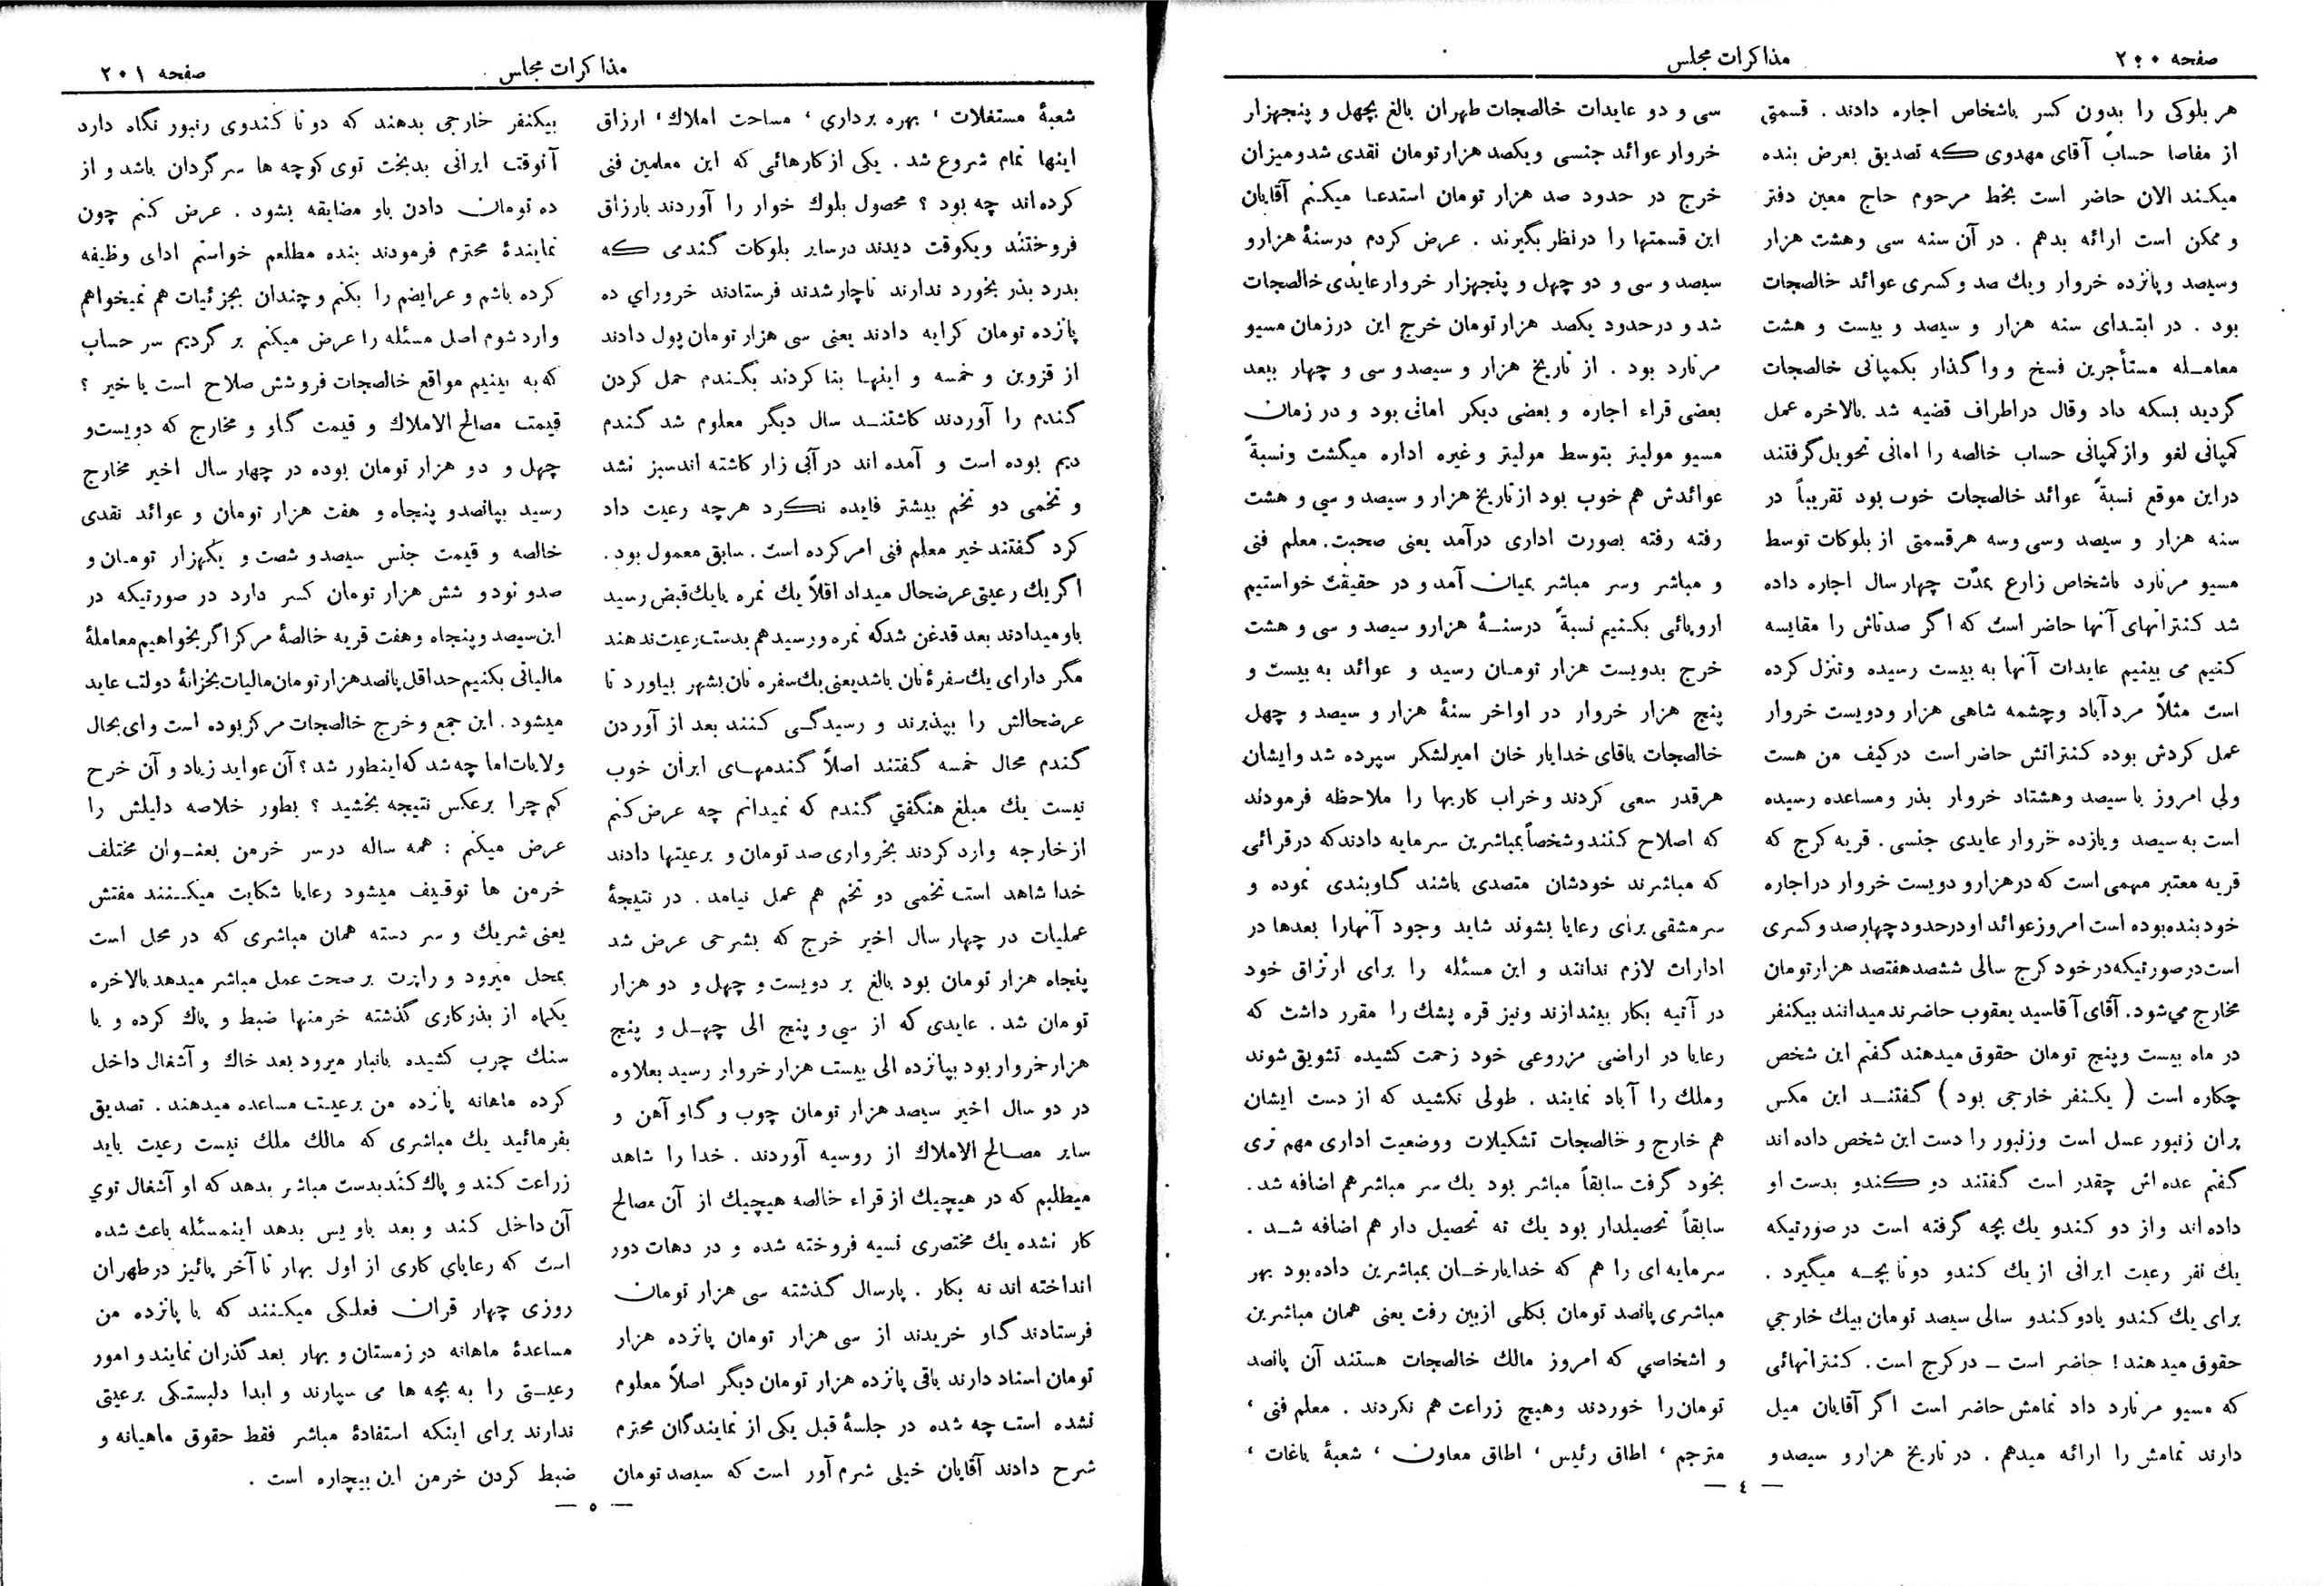 صفحه ۲۰۰
مذاکرات مجلس
هر بلوکی را بدون کسر باشخاص اجاره دادند . قسمتی
از مفاصا حساب آقای مهدوی که تصدیق بعرض بنده
میکند الان حاضر است بخط مرحوم حاج معین دفتر
و ممکن است ارائه بدهم . در آن سنه سی وهشت هزار
وسیصد و پانزده خروار ویك صد وکسری عوائد خالصجات
بود . در ابتدای سنه هزار و سیصد و بیست و هشت
معامله مستأجرین فسخ و واگذار بکمپانی خالصجات
گردید بسکه داد وقال دراطراف قضیه شد بالاخره عمل
کمپانی لغو وازکمپانی حساب خالصه را امانی تحویل گرفتند
دراین موقع نسبةً عوائد خالصجات خوب بود تقریباً در
سنه هزار و سیصد وسی وسه هرقسمتی از بلوکات توسط
مسیو مرنارد باشخاص زارع بمدّت چهار سال اجاره داده
شد کنتراتهای آنها حاضر است که اگر صدتاش را مقایسه
کنیم می بینیم عایدات آنها به بیست رسیده وتنزل کرده
است مثلاً مردآباد وچشمه شاهی هزار ودویست خروار
عمل کردش بوده کنتراتش حاضر است درکیف من هست
ولی امروز با سیصد وهشتاد خروار بذر ومساعده رسیده
است به سیصد ویازده خروار عایدی جنسی . قریه کرج که
قریه معتبر مهمی است که درهزارو دویست خروار دراجاره
خود بنده بوده است امروزعوائد اودرحدود چهارصد وکسری
است درصورتیکه در خود کرج سالی ششصد هفتصد هزارتومان
مخارج می‌شود. آقای آقاسید یعقوب حاضرند میدانند بیکنفر
در ماه بیست وپنج تومان حقوق میدهند گفتم این شخص
چکاره است ( یکنفر خارجی بود ) گفتند این مکس
پران زنبور عسل است وزنبور را دست این شخص داده اند
گفتم عده اش چقدر است گفتند دو کندو بدست او
داده اند واز دو کندو یك بچه گرفته است درصورتیکه
یك نفر رعیت ایرانی از یك کندو دوتا بچه میگیرد .
برای یك کندو یادوکندو سالی سیصد تومان بیك خارجی
حقوق میدهند! حاضر است ــ درکرج است. کنتراتهائی
که مسیو مرنارد داد تمامش حاضر است اگر آقایان میل
دارند تمامش را ارائه میدهم . در تاریخ هزارو سیصدو
سی و دو عایدات خالصجات طهران بالغ بچهل و پنجهزار
خروار عوائد جنسی ویکصد هزارتومان نقدی شدومیزان
خرج در حدود صد هزار تومان استدعا میکنم آقایان
این قسمتها را درنظر بگیرند . عرض کردم درسنهٔ هزارو
سیصد و سی و دو چهل و پنجهزار خروار عایدی خالصجات
شد و درحدود یکصد هزارتومان خرج این درزمان مسیو
مرنارد بود . از تاریخ هزار و سیصد و سی و چهار ببعد
بعضی قراء اجاره و بعضی دیکر امانی بود و در زمان
مسیو مولیتر بتوسط مولیتر و غیره اداره میگشت ونسبةً
عوائدش هم خوب بود از تاریخ هزار و سیصد و سی و هشت
رفته رفته بصورت اداری درآمد یعنی صحبت. معلم فنی
و مباشر وسر مباشر بمیان آمد و در حقیقت خواستیم
اروپائی بکنیم نسبةً درسنهٔ هزارو سیصد و سی و هشت
خرج بدویست هزار تومان رسید و عوائد به بیست و
پنج هزار خروار در اواخر سنهٔ هزار و سیصد و چهل
خالصجات باقای خدایار خان امیرلشکر سپرده شد وایشان
هرقدر سعی کردند وخراب کاریها را ملاحظه فرمودند
که اصلاح کنند وشخصاً بمباشرین سرمایه دادندکه درقرائی
که مباشرند خودشان متصدی باشند گاوبندی نموده و
سرمشقی برای رعایا بشوند شاید وجود آنهارا بعدها در
ادارات لازم ندانند و این مسئله را برای ارتزاق خود
در آتیه بکار بیندازند ونیز قره پشك را مقرر داشت که
رعایا در اراضی مزروعی خود زحمت کشیده تشویق شوند
وملك را آباد نمایند . طولی نکشید که از دست ایشان
هم خارج و خالصجات تشکیلات ووضعیت اداری مهم تری
بخود گرفت سابقاً مباشر بود یك سر مباشر هم اضافه شد.
سابقاً تحصیلدار بود یك ته تحصیل دار هم اضافه شد .
سرمایه ای را هم که خدایارخان بمباشرین داده بود بهر
مباشری پانصد تومان بکلی ازبین رفت یعنی همان مباشرین
و اشخاصی که امروز مالك خالصجات هستند آن پانصد
تومان را خوردند وهیچ زراعت هم نکردند . معلم فنی ،
مترجم ، اطاق رئیس ، اطاق معاون ، شعبهٔ باغات ،
— ٤ —
مذاکرات مجلس
صفحه ۲۰۱
شعبهٔ مستغلات ، بهره برداری ، مساحت املاك ، ارزاق
اینها تمام شروع شد . یکی از کارهائی که این معلمین فنی
کرده‌اند چه بود ؟ محصول بلوك خوار را آوردند بارزاق
فروختند ویکوقت دیدند درسایر بلوکات گندمی که
بدرد بذر بخورد ندارند ناچار شدند فرستادند خرواری ده
پازده تومان کرایه دادند یعنی سی هزار تومان پول دادند
از قزوین و خمسه و اینها بنا کردند بگندم حمل کردن
گندم را آوردند کاشتند سال دیگر معلوم شد گندم
دیم بوده است و آمده اند درآبی زار کاشته اندسبز نشد
و تخمی دو تخم بیشتر فایده نکرد هرچه رعیت داد
کرد گفتند خیر معلم فنی امر کرده است . سابق معمول بود .
اگر یك رعیتی عرضحال میداد اقلاً یك نمره یایك قبض رسید
باو میدادند بعد قدغن شدکه نمره ورسید هم بدست رعیت ندهند
مگر دارای یك سفرهٔ نان باشد یعنی یك سفره نان بشهر بیاورد تا
عرضحالش را بپذیرند و رسیدگی کنند بعد از آوردن
گندم محال خمسه گفتند اصلاً گندمهای ایران خوب
نیست یك مبلغ هنگفتی گندم که نمیدانم چه عرض کنم
ازخارجه وارد کردند بخرواری صد تومان و برعیتها دادند
خدا شاهد است تخمی دو تخم هم عمل نیامد . در نتیجهٔ
عملیات در چهار سال اخیر خرج که بشرحی عرض شد
پنجاه هزار تومان بود بالغ بر دویست و چهل و دو هزار
تومان شد . عایدی که از سی و پنج الی چهل و پنج
هزار خروار بود بپانزده الی بیست هزار خروار رسید بعلاوه
در دو سال اخیر سیصد هزار تومان چوب و گاو آهن و
سایر مصالح الاملاك از روسیه آوردند . خدا را شاهد
میطلبم که در هیچیك از قراء خالصه هیچیك از آن مصالح
کار نشده یك مختصری نسیه فروخته شده و در دهات دور
انداخته اند نه بکار . پارسال گذشته سی هزار تومان
فرستادند گاو خریدند از سی هزار تومان پانزده هزار
تومان اسناد دارند باقی پانزده هزار تومان دیگر اصلاً معلوم
نشده است چه شده در جلسهٔ قبل یکی از نمایندگان محترم
شرح دادند آقایان خیلی شرم آور است که سیصد تومان
بیکنفر خارجی بدهند که دوتا کندوی زنبور نگاه دارد
آنوقت ایرانی بدبخت توی کوچه ها سرگردان باشد و از
ده تومان دادن باو مضایقه بشود . عرض کنم چون
نمایندهٔ محترم فرمودند بنده مطلعم خواستم ادای وظیفه
کرده باشم و عرایضم را بکنم و چندان بجزئیات هم نمیخواهم
وارد شوم اصل مسئله را عرض میکنم بر گردیم سر حساب
که به بینیم مواقع خالصجات فروشش صلاح است یا خیر ؟
قیمت مصالح الاملاك و قیمت گاو و مخارج که دویست و
چهل و دو هزار تومان بوده در چهار سال اخیر مخارج
رسید بپانصدو پنجاه و هفت هزار تومان و عوائد نقدی
خالصه و قیمت جنس سیصد و شصت و یکهزار تومان و
صدو نودو شش هزار تومان کسر دارد در صورتیکه در
این سیصد و پنجاه و هفت قریه خالصهٔ مرکز اگر بخواهیم معاملهٔ
مالیاتی بکنیم حداقل پانصد هزار تومان مالیات بخزانهٔ دولت عاید
میشود . این جمع و خرج خالصجات مرکز بوده است وای بحال
ولایات اما چه شد که اینطور شد ؟ آن عواید زیاد و آن خرح
کم چرا برعکس نتیجه بخشید ؟ بطور خلاصه دلیلش را
عرض میکنم : همه ساله درسر خرمن بعنوان مختلف
خرمن ها توقیف میشود رعایا شکایت میکنند مفتش
یعنی شریك و سر دسته همان مباشری که در محل است
بمحل میرود و راپرت بر صحت عمل مباشر میدهد بالاخره
یکماه از بذرکاری گذشته خرمنها ضبط و پاك کرده و با
سنك چرب کشیده بانبار میرود بعد خاك و آشغال داخل
کرده ماهانه پانزده من برعیت مساعده میدهند . تصدیق
بفرمائید یك مباشری که مالك ملك نیست رعیت باید
زراعت کند و پاك کند بدست مباشر بدهد که او آشغال توی
آن داخل کند و بعد باو پس بدهد اینمسئله باعث شده
است که رعایای کاری از اول بهار تا آخر پائیز درطهران
روزی چهار قران فعلکی میکنند که با پانزده من
مساعدهٔ ماهانه در زمستان و بهار بعد گذران نمایند و امور
رعیتی را به بچه ها می سپارند و ابدا دلبستگی برعیتی
ندارند برای اینکه استفادهٔ مباشر فقط حقوق ماهیانه و
ضبط کردن خرمن این بیچاره است .
— ٥ —